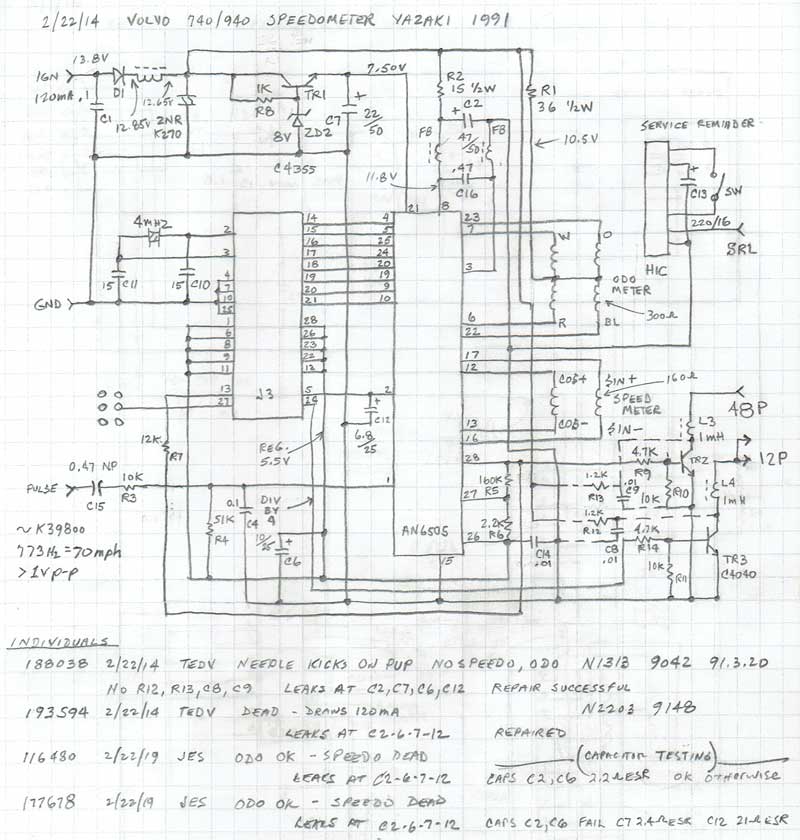 2/22/14 VOLVO 740/940 SPEEDOMETER YAZAKI 1991
13.8V
IGN
120mA
.1
C1
D1
12.85V
12.65V
ZNR
K270
1K
R8
TR1
8V
ZD2
C4355
7.50V
C7
22/50
R2
15 ½W
C2
47/50
FB
FB
.47
C16
11.8V
R1
36 ½W
10.5V
SERVICE REMINDER
C13
SW
220/16
SRL
HIC
4MHZ
15
C11
15
C10
GND
2
3
4
7
10
25
1
6
8
9
11
13
27
14
15
16
17
18
19
20
21
28
26
23
22
12
5
24
J3
4
5
25
24
20
19
9
10
2
1
21
8
23
7
3
6
22
17
12
13
16
28
27
26
15
AN6505
W
O
R
BL
ODO METER
300Ω
COS+
COS-
SIN+
SIN-
160Ω
SPEED METER
48P
12P
L3
1mH
L4
1mH
TR2
TR3
C4040
4.7K
R9
1.2K
R13
.01
C9
10K
R10
1.2K
R12
4.7K
R14
C8
.01
10K
R11
160K
R5
2.2K
R6
C14
.01
C12
6.8/25
REG.
5.5V
DIV BY 4
12K
R7
0.47 NP
PULSE
C15
10K
R3
51K
R4
0.1
C4
10/25
C6
~ K39800
773HZ = 70mph
> 1V p-p
INDIVIDUALS
188038 2/22/14 TEDV NEEDLE KICKS ON PUP NO SPEEDO, ODO N1313 9042 91.3.20
NO R12, R13, C8, C9 LEAKS AT C2, C7, C6, C12 REPAIR SUCCESSFUL
193594 2/22/14 TEDV DEAD - DRAWS 120MA N2203 9148
LEAKS AT C2-6-7-12 REPAIRED
116480 2/22/19 JES ODO OK - SPEEDO DEAD (CAPACITOR TESTING)
LEAKS AT C2-6-7-12 CAPS C2, C6 2.2Ω ESR OK OTHERWISE
177678 2/22/19 JES ODO OK - SPEEDO DEAD
LEAKS AT C2-6-7-12 CAPS C2, C6 FAIL C7 2.4Ω ESR C12 21Ω ESR